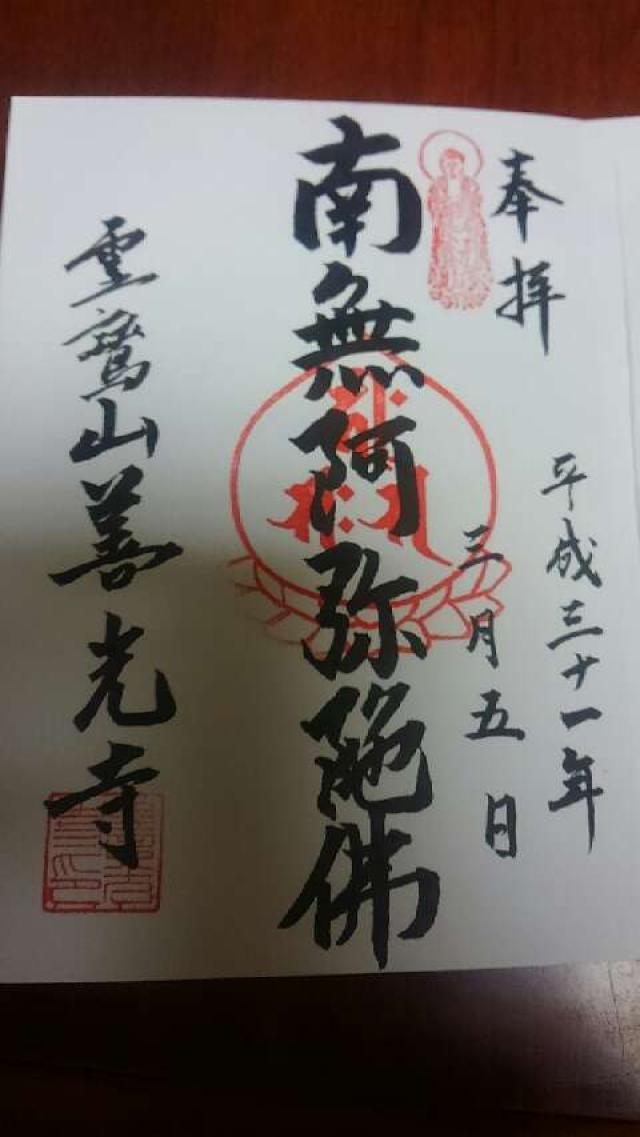 奉拝
平成三十一年
三月五日
南無阿弥陀佛
霊鷲山善光寺